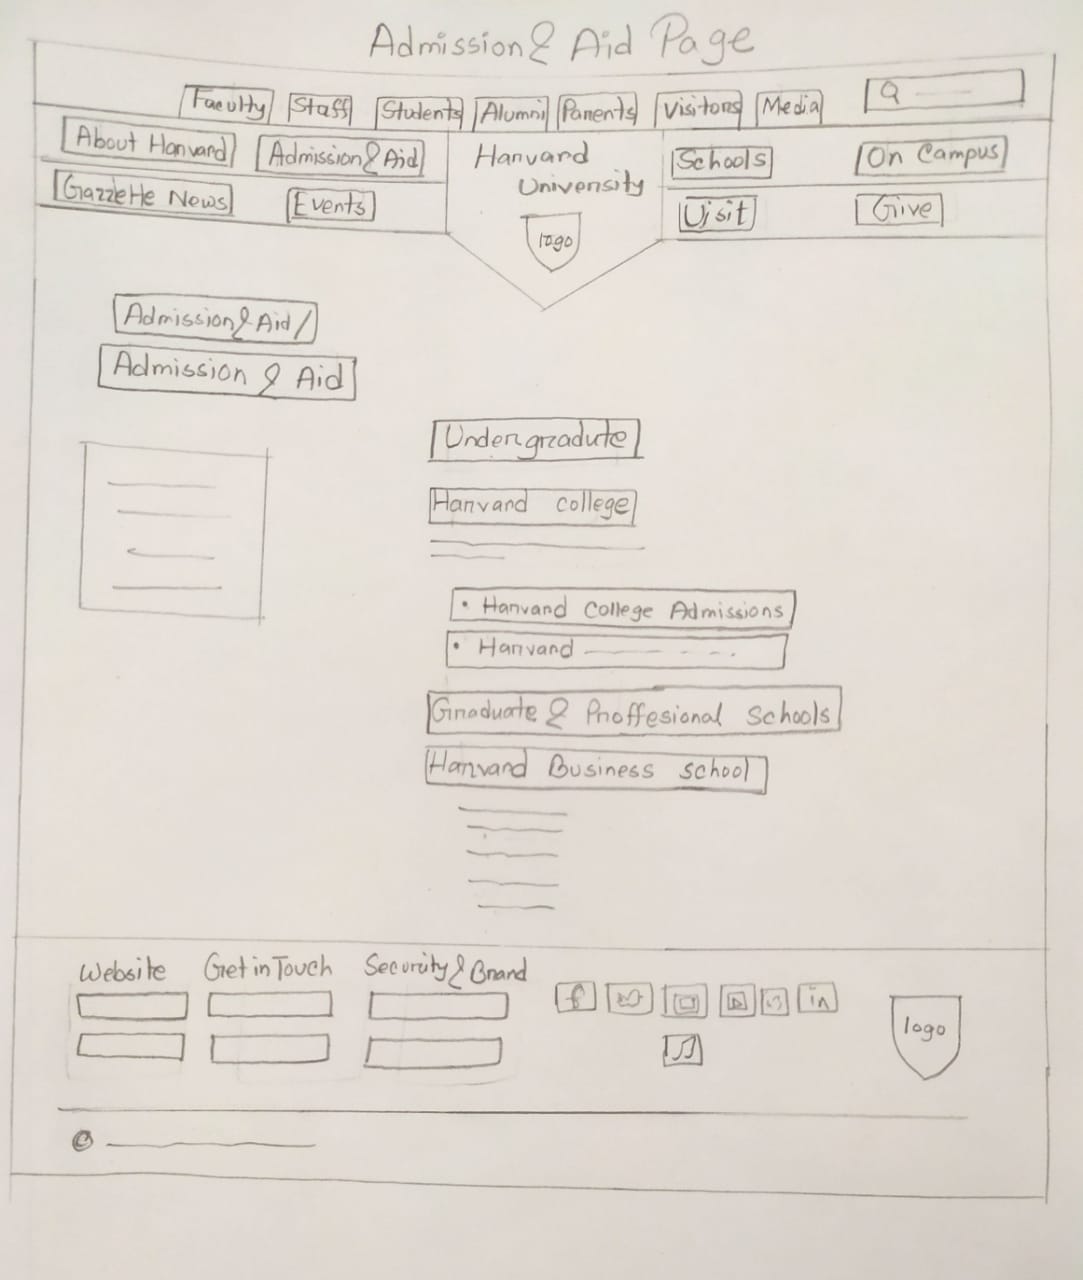 Admission & Aid Page
Faculty Staff Students Alumni Parents Visitors Media
About Harvard Admission & Aid Harvard University Schools On Campus
Gazzette News Events logo Visit Give
Admission & Aid /
Admission & Aid
Undergradute
Harvard college
• Harvard College Admissions
• Harvard
Graduate & Proffesional Schools
Harvard Business school
Website Get in Touch Security & Brand
f in
logo
©